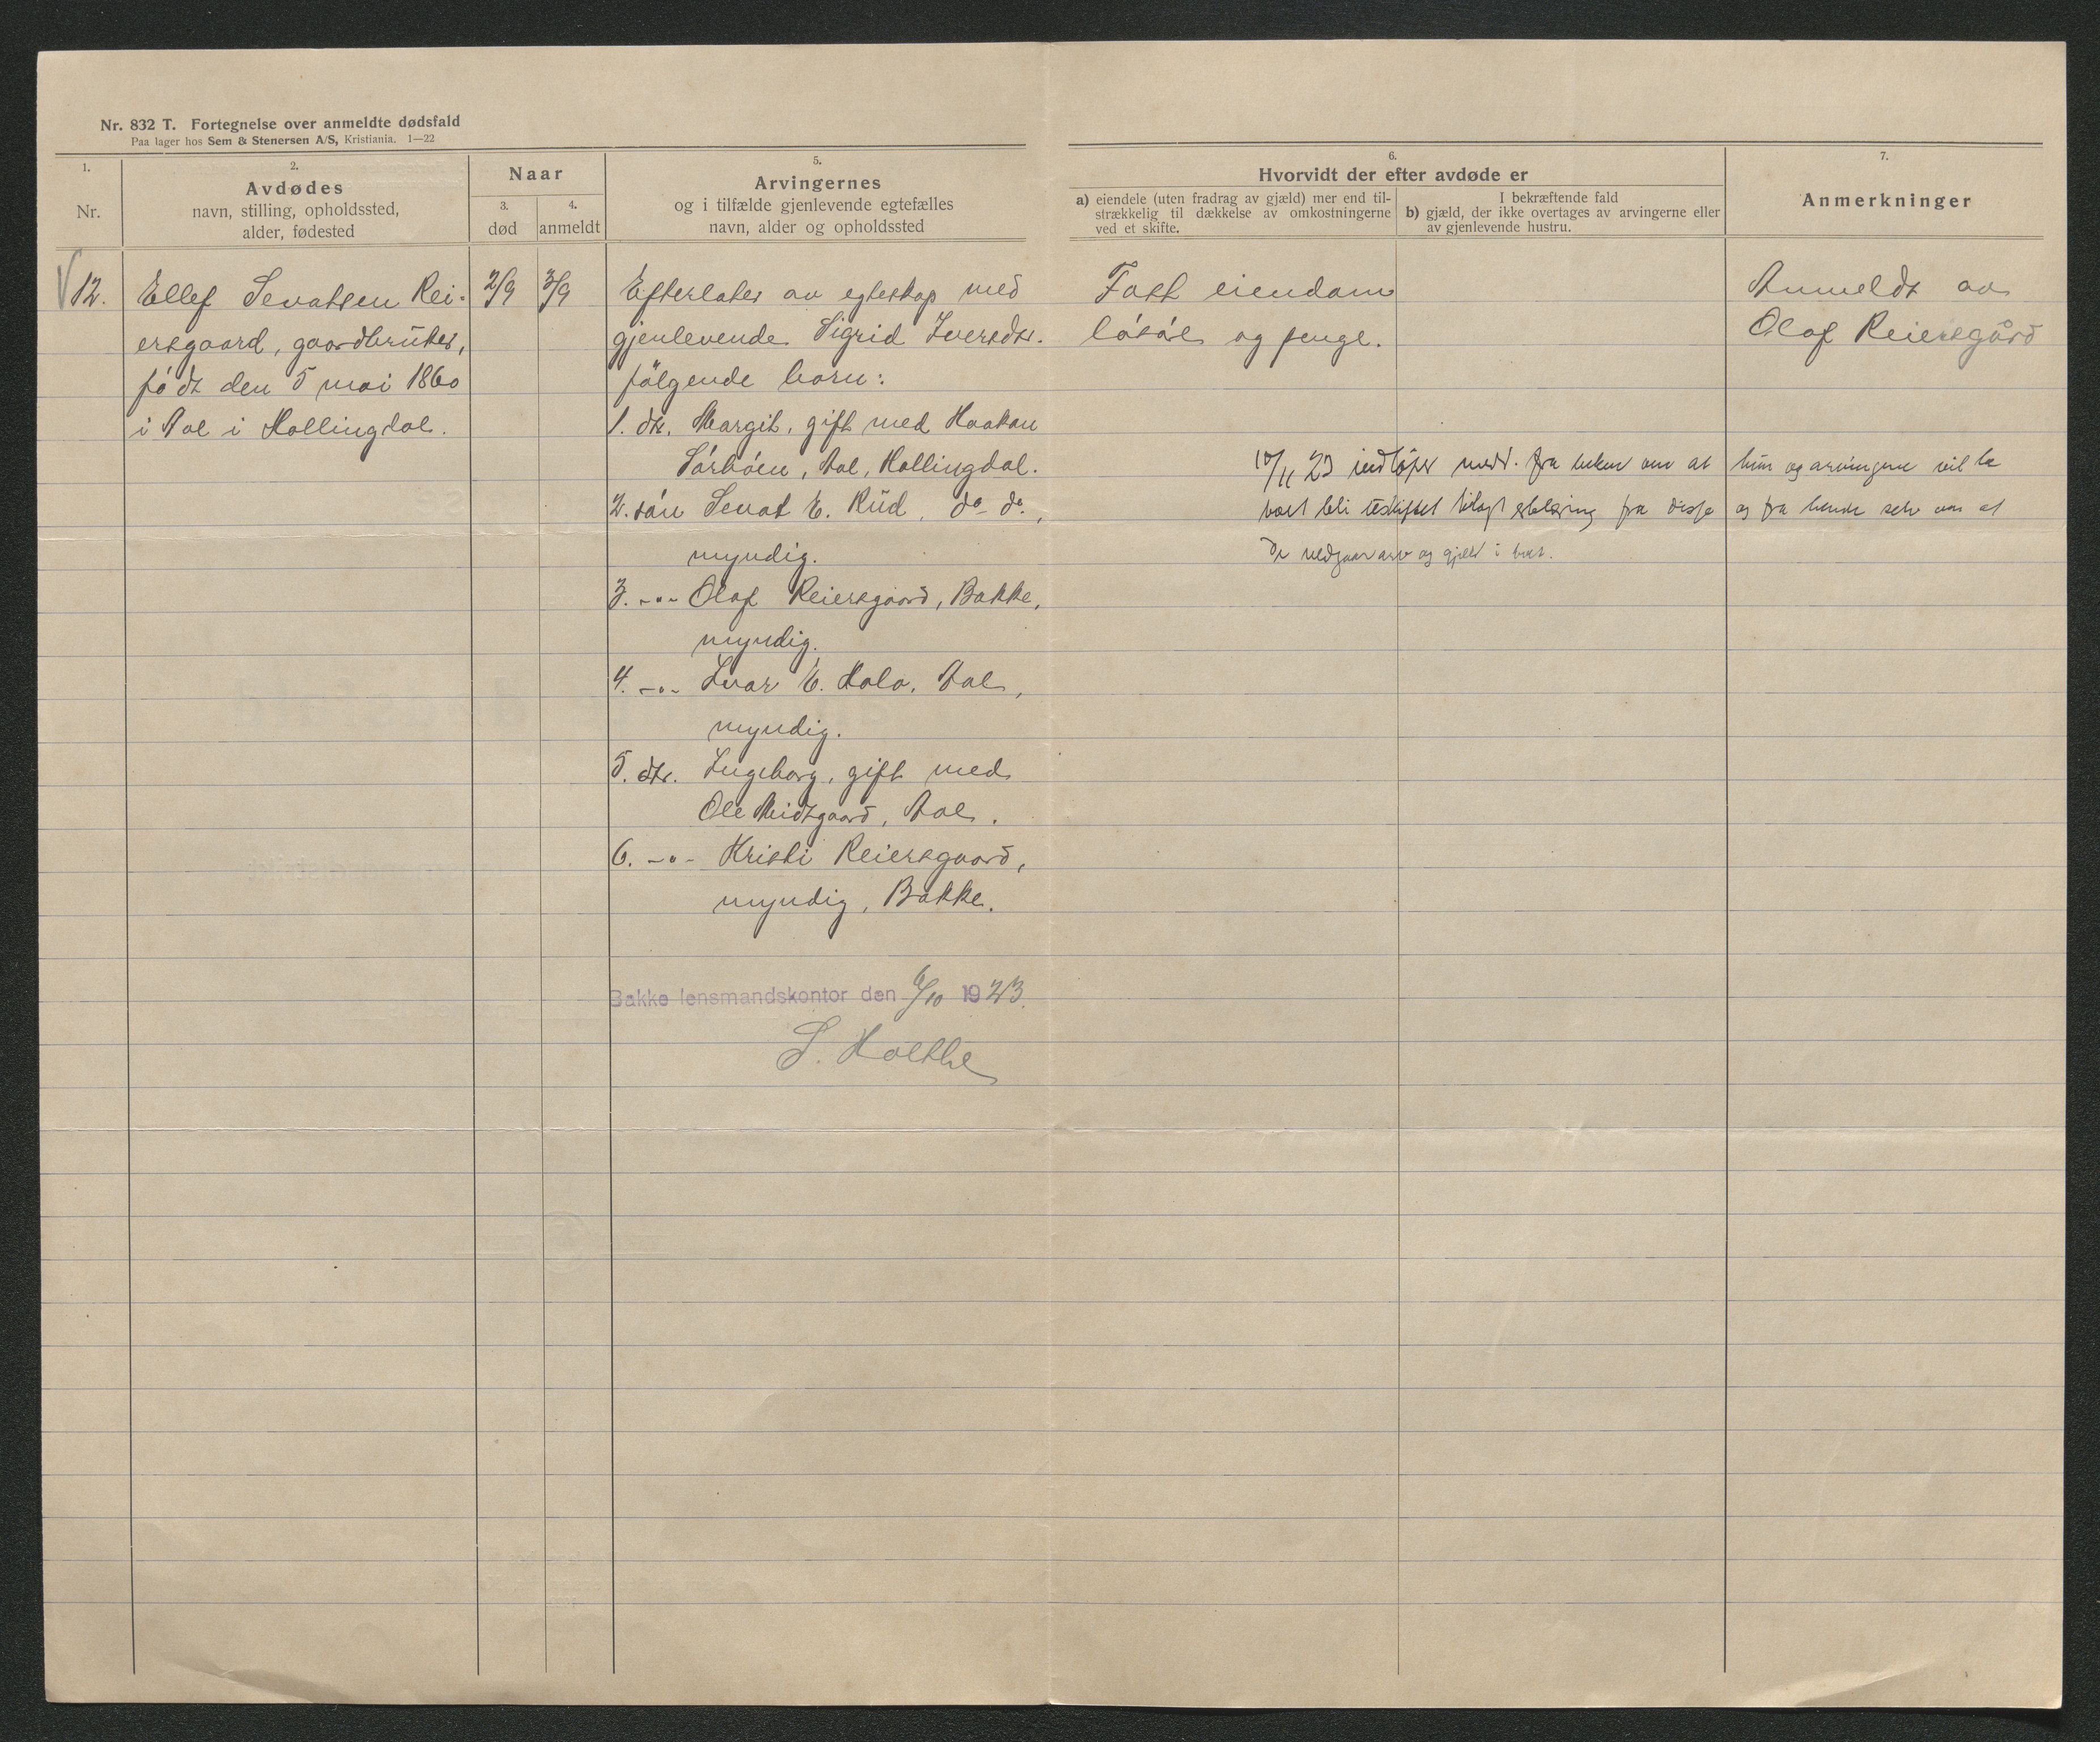 Nr. 832 T. Fortegnelse over anmeldte dødsfald
Paa lager hos Sem & Stenersen A/S, Kristiania. 1—22
1.
Nr.
2.
Avdødes
navn, stilling, opholdssted,
alder, fødested
Naar
3.
død
4.
anmeldt
5.
Arvingernes
og i tilfælde gjenlevende egtefælles
navn, alder og opholdssted
6.
Hvorvidt der efter avdøde er
a) eiendele (uten fradrag av gjæld) mer end til-
strækkelig til dækkelse av omkostningerne
ved et skifte.
I bekræftende fald
b) gjæld, der ikke overtages av arvingerne eller
av gjenlevende hustru.
7.
Anmerkninger
12.
Ellef Sevatsen Rei-
ersgaard, gaardbruker,
født den 5 mai 1860
i Aal i Hallingdal.
2/9
3/9
Efterlater av egteskap med
gjenlevende Sigrid Iversdtr.
følgende barn:
1. dtr. Margit, gift med Haakon
Sørbøen, Aal, Hallingdal.
2. søn Sevat E. Rud, do do,
myndig.
3. -"- Olaf Reiersgaard, Bakke,
myndig.
4. -"- Ivar E. Holo, Aal,
myndig.
5. dtr. Ingeborg, gift med
Ole Midtgaard, Aal.
6. -"- Kristi Reiersgaard,
myndig, Bakke.
Bakke lensmandskontor den 6/10 1923.
S. Holthe
Fast eiendom
løsøre og penge.
Anmeldt av
Olaf Reiersgård
10/11 23 indløper medd. fra enken om at hun og arvingene vil la
boet bli uskiftet bilagt erklæring fra disse og fra hende selv om at
de vedgaar arv og gjæld i boet.